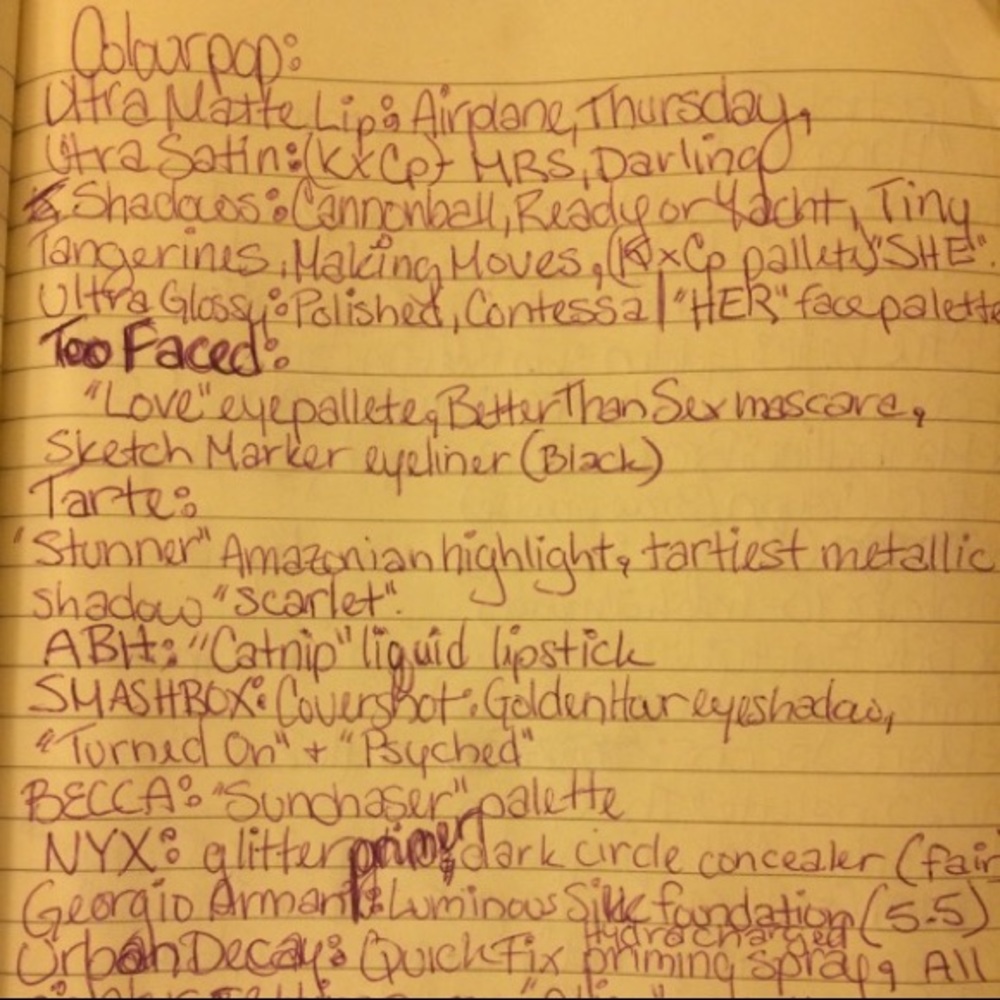 Colourpop:
Ultra Matte Lip: Airplane, Thursday,
Ultra Satin: (KxCp) MRS, Darling
Shadows: Cannonball, Ready or Yacht, Tiny
Tangerines, Making Moves, (KxCp pallete) "SHE".
Ultra Glossy: Polished, Contessa | "HER" face palette
Too Faced:
"Love" eye pallete, Better Than Sex mascara,
Sketch Marker eyeliner (Black)
Tarte:
"Stunner" Amazonian highlight, tartiest metallic
shadow "scarlet".
ABH: "Catnip" liquid lipstick
SMASHBOX: Covershot: Golden Hour eyeshadow,
"Turned On" + "Psyched"
BECCA: "Sunchaser" palette
NYX: glitter primer, dark circle concealer (fair
Georgio Armani: Luminous Silk foundation (5.5)
Hydracharged
Urban Decay: Quick Fix priming spray, All